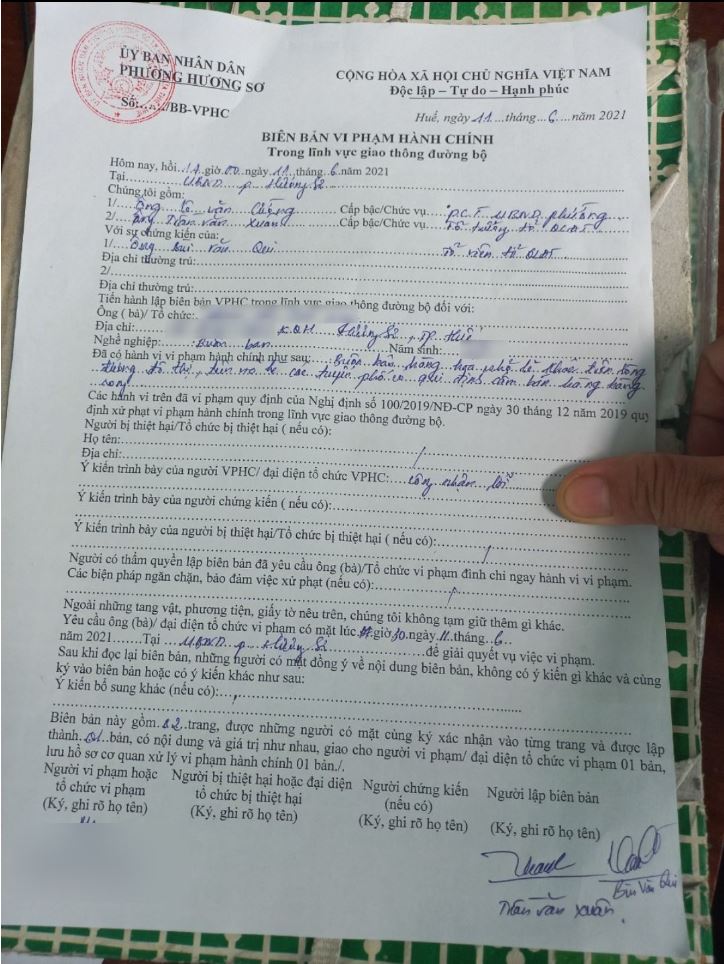 ỦY BAN NHÂN DÂN
PHƯỜNG HƯƠNG SƠ
CỘNG HÒA XÃ HỘI CHỦ NGHĨA VIỆT NAM
Độc lập – Tự do – Hạnh phúc
Số:..../BB-VPHC
Huế, ngày 11 tháng 6 năm 2021
BIÊN BẢN VI PHẠM HÀNH CHÍNH
Trong lĩnh vực giao thông đường bộ
Hôm nay, hồi 14 giờ 00 ngày 11 tháng 6 năm 2021
Tại UBND p. Hương Sơ
Chúng tôi gồm:
1/ Ông Tô Văn Cấp bậc/Chức vụ P.C.T UBND phường
2/ Ông Trần Văn Xuân Cấp bậc/Chức vụ Tổ trưởng tổ QLĐT
Với sự chứng kiến của:
1/ Ông Bùi Văn Qui Tổ viên tổ QLĐT
Địa chỉ thường trú:
2/
Địa chỉ thường trú:
Tiến hành lập biên bản VPHC trong lĩnh vực giao thông đường bộ đối với:
Ông ( bà)/ Tổ chức:
Địa chỉ: KQH Hương Sơ, TP Huế
Nghề nghiệp: Buôn bán Năm sinh:
Đã có hành vi vi phạm hành chính như sau: Buôn bán hàng
đô thị, các tuyến phố có qui định cấm bán hàng
rong
Các hành vi trên đã vi phạm quy định của Nghị định số 100/2019/NĐ-CP ngày 30 tháng 12 năm 2019 quy
định xử phạt vi phạm hành chính trong lĩnh vực giao thông đường bộ.
Người bị thiệt hại/Tổ chức bị thiệt hại ( nếu có):
Họ tên:
Địa chỉ:
Ý kiến trình bày của người VPHC/ đại diện tổ chức VPHC: công nhận lỗi
Ý kiến trình bày của người chứng kiến ( nếu có):
Ý kiến trình bày của người bị thiệt hại/Tổ chức bị thiệt hại ( nếu có):
Người có thẩm quyền lập biên bản đã yêu cầu ông (bà)/Tổ chức vi phạm đình chỉ ngay hành vi vi phạm.
Các biện pháp ngăn chặn, bảo đảm việc xử phạt (nếu có):
Ngoài những tang vật, phương tiện, giấy tờ nêu trên, chúng tôi không tạm giữ thêm gì khác.
Yêu cầu ông (bà)/ đại diện tổ chức vi phạm có mặt lúc giờ 30 ngày 11 tháng 6
năm 2021 Tại UBND p. Hương Sơ để giải quyết vụ việc vi phạm.
Sau khi đọc lại biên bản, những người có mặt đồng ý về nội dung biên bản, không có ý kiến gì khác và cùng
ký vào biên bản hoặc có ý kiến khác như sau:
Ý kiến bổ sung khác (nếu có):
Biên bản này gồm 02 trang, được những người có mặt cùng ký xác nhận vào từng trang và được lập
thành 01 bản, có nội dung và giá trị như nhau, giao cho người vi phạm/ đại diện tổ chức vi phạm 01 bản,
lưu hồ sơ cơ quan xử lý vi phạm hành chính 01 bản./.
Người vi phạm hoặc Người bị thiệt hại hoặc đại diện Người chứng kiến Người lập biên bản
tổ chức vi phạm tổ chức bị thiệt hại (nếu có)
(Ký, ghi rõ họ tên) (Ký, ghi rõ họ tên) (Ký, ghi rõ họ tên) (Ký, ghi rõ họ tên)
Bùi Văn Qui
Trần Văn Xuân